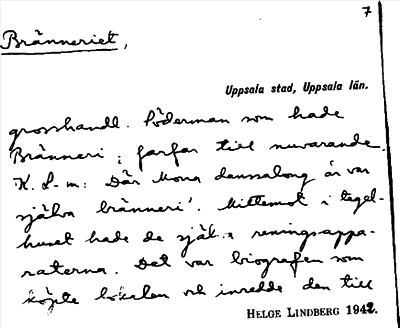 7
Bränneriet,
Uppsala stad, Uppsala län.
grosshandl. Söderman som hade
Bränneri, farfar till nuvarande
K. L-m: Där Mona danssalong är var
själva bränneri'. Mittemot i tegel-
huset hade de själva reningsappa-
raterna. Det var biografen som
köpte lokalen och inredde den till
HELGE LINDBERG 1942.